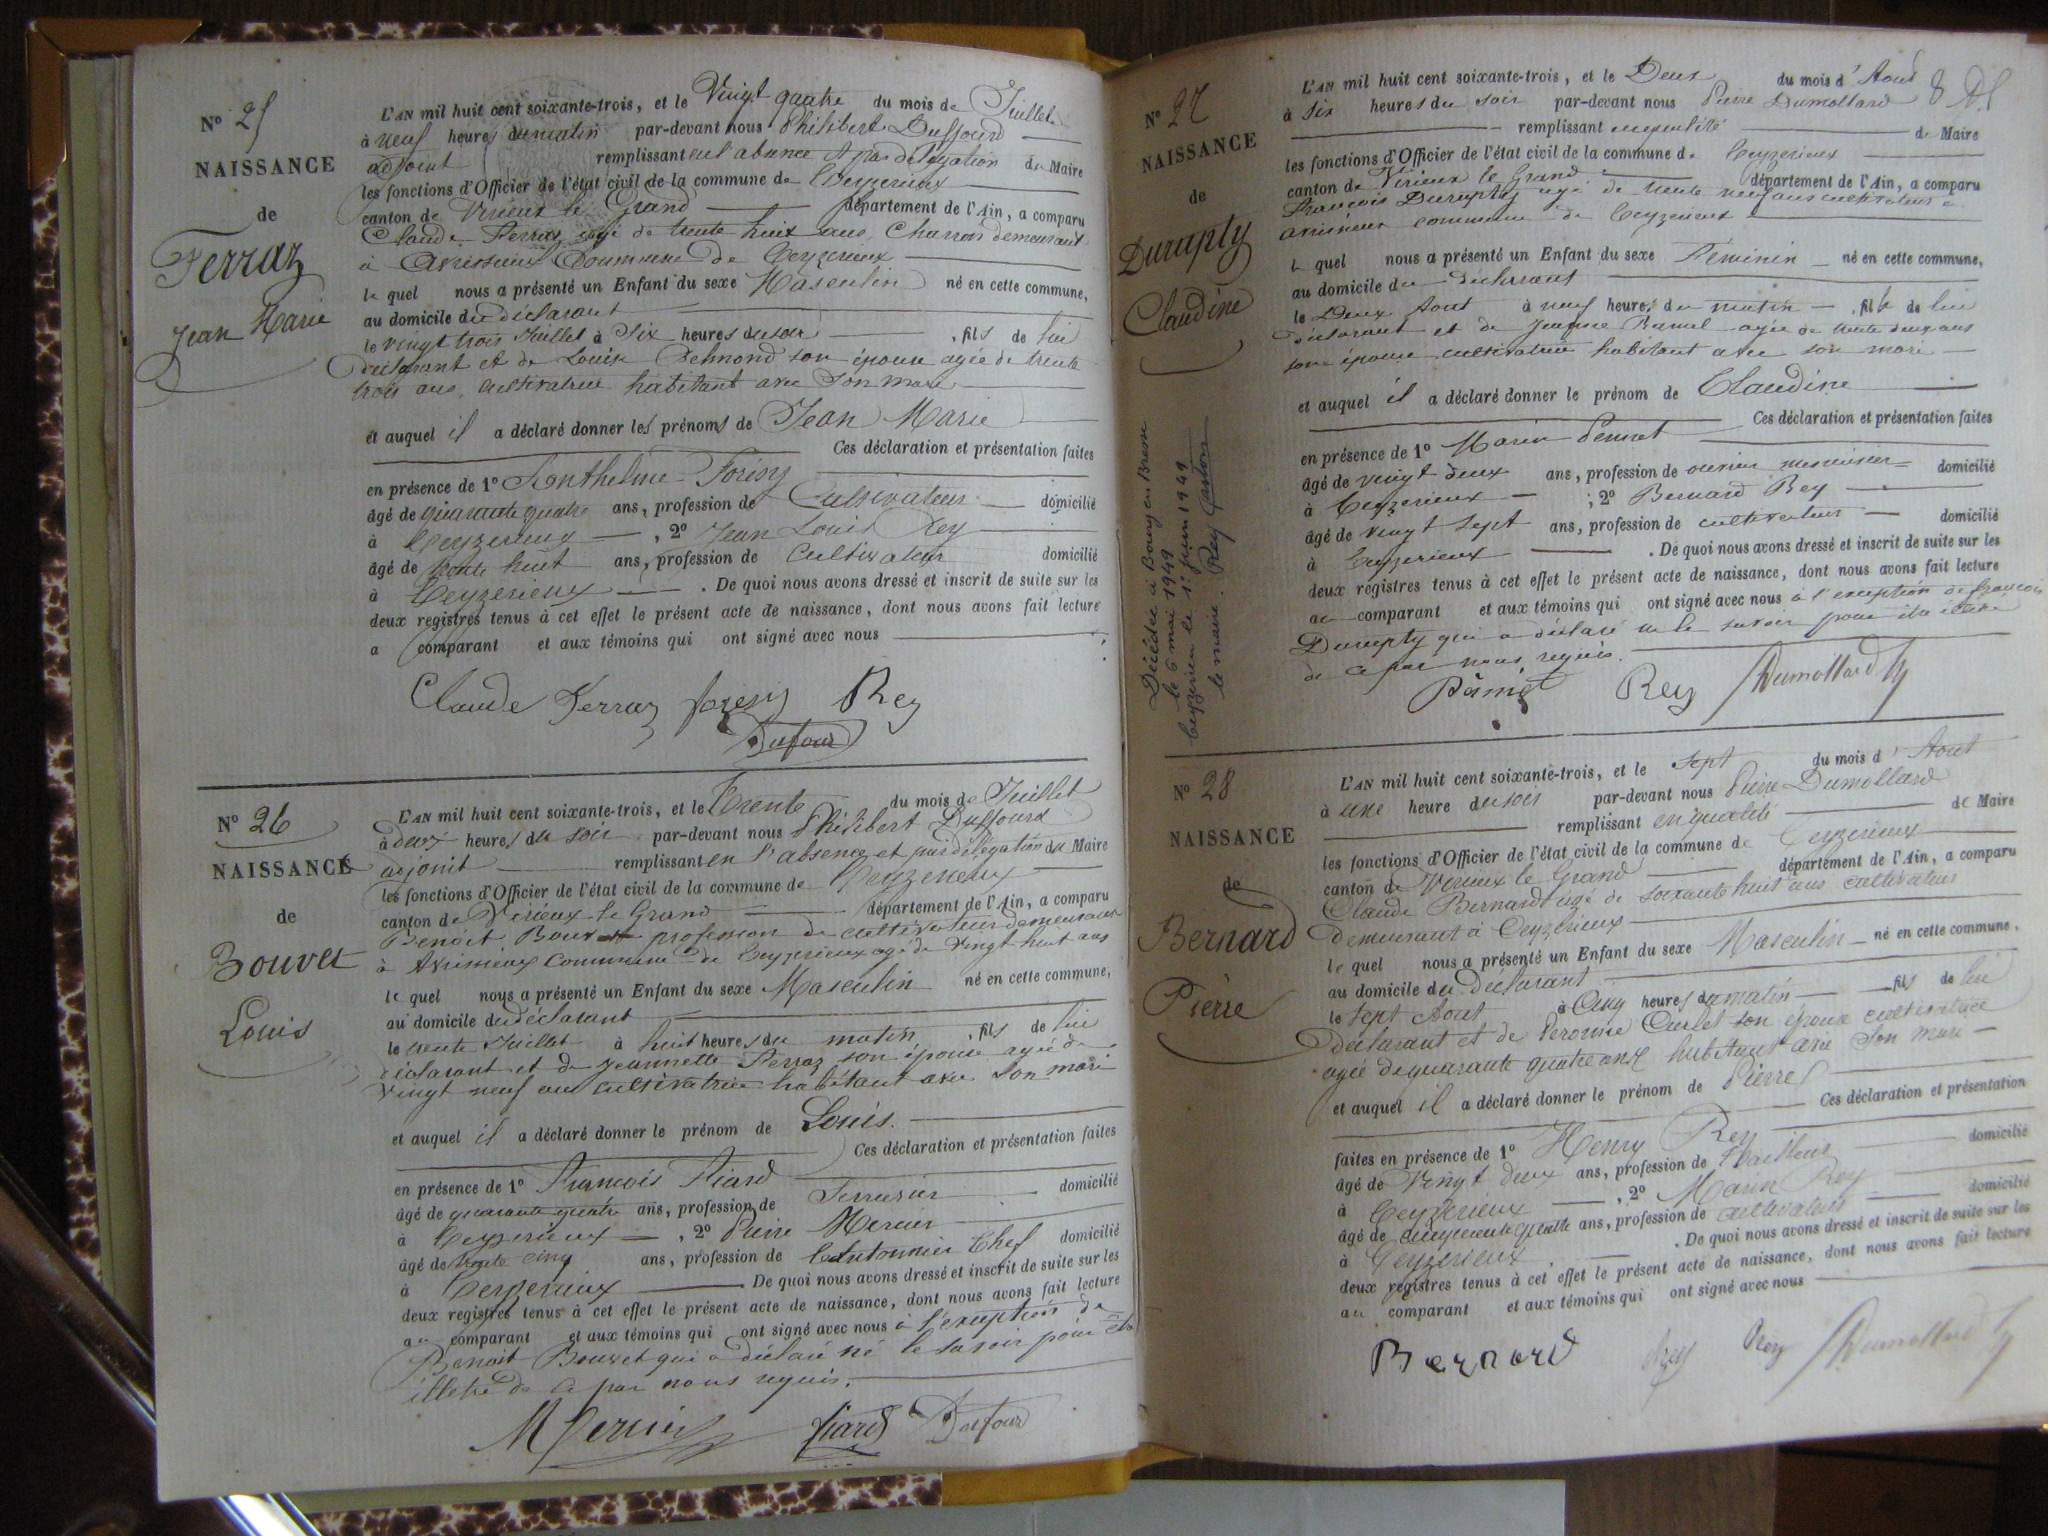 N° 25
NAISSANCE
de
Ferraz
Jean Marie
L'AN mil huit cent soixante-trois, et le Vingt quatre du mois de Juillet
à neuf heures du matin par-devant nous Philibert Duffourd
adjoint remplissant en l'absence et par délégation du Maire
les fonctions d'Officier de l'état civil de la commune de Ceyzerieux
canton de Virieux le Grand département de l'Ain, a comparu
Claude Ferraz agé de trente huit ans, Charron demeurant
à Avrissieux Commune de Ceyzerieux
le quel nous a présenté un Enfant du sexe Masculin né en cette commune,
au domicile du déclarant
le vingt trois Juillet à Six heures du soir, fils de lui
déclarant et de Louise son épouse agée de trente
trois ans, cultivatrice habitant avec son mari
et auquel il a déclaré donner les prénoms de Jean Marie
Ces déclaration et présentation faites
en présence de 1° Anthelme
âgé de quarante quatre ans, profession de Cultivateur domicilié
à Ceyzerieux, 2° Jean Louis Rey
âgé de trente huit ans, profession de Cultivateur domicilié
à Ceyzerieux. De quoi nous avons dressé et inscrit de suite sur les
deux registres tenus à cet effet le présent acte de naissance, dont nous avons fait lecture
a comparant et aux témoins qui ont signé avec nous
Claude Ferraz Rey
Dufour
N° 26
NAISSANCE
de
Bouvet
Louis
L'AN mil huit cent soixante-trois, et le Trente du mois de Juillet
à deux heures du soir par-devant nous Philibert Duffourd
adjoint remplissant en l'absence et par délégation du Maire
les fonctions d'Officier de l'état civil de la commune de Ceyzerieux
canton de Virieux-le Grand département de l'Ain, a comparu
Benoit Bouvet profession de cultivateur demeurant
à Avrissieux commune de Ceyzerieux agé de vingt huit ans
le quel nous a présenté un Enfant du sexe Masculin né en cette commune,
au domicile du déclarant
le trente Juillet à huit heures du matin, fils de lui
déclarant et de Jeannette Ferraz son épouse agée de
vingt neuf ans cultivatrice habitant avec son mari
et auquel il a déclaré donner le prénom de Louis.
Ces déclaration et présentation faites
en présence de 1° François
âgé de quarante quatre ans, profession de domicilié
à Ceyzerieux, 2° Pierre Mercier
âgé de trente cinq ans, profession de Cantonnier Chef domicilié
à Ceyzerieux De quoi nous avons dressé et inscrit de suite sur les
deux registres tenus à cet effet le présent acte de naissance, dont nous avons fait lecture
au comparant et aux témoins qui ont signé avec nous à l'exception de
Benoit Bouvet qui a déclaré ne le savoir pour être
illetré de ce par nous requis.
Mercier Dufour
N° 27
NAISSANCE
de
Durupty
Claudine
Décédée à Bourg en Bresse
le 6 mai 1949
Ceyzerieu le 1er juin 1949
le maire. Rey Gaston
8
L'AN mil huit cent soixante-trois, et le Deux du mois d'Aout
à six heures du soir par-devant nous Pierre Dumollard
remplissant en qualité de Maire
les fonctions d'Officier de l'état civil de la commune de Ceyzerieux
canton de Virieux le Grand département de l'Ain, a comparu
François Durupty agé de trente neuf ans cultivateur à
Avrissieux commune de Ceyzerieux
le quel nous a présenté un Enfant du sexe Féminin né en cette commune,
au domicile du déclarant
le Deux Aout à neuf heures du matin, fille de lui
déclarant et de Jeanne agée de trente deux ans
son épouse cultivatrice habitant avec son mari
et auquel il a déclaré donner le prénom de Claudine
Ces déclaration et présentation faites
en présence de 1° Marin
âgé de vingt deux ans, profession de ouvrier menuisier domicilié
à Ceyzerieux; 2° Bernard Rey
âgé de vingt sept ans, profession de cultivateur domicilié
à Ceyzerieux. De quoi nous avons dressé et inscrit de suite sur les
deux registres tenus à cet effet le présent acte de naissance, dont nous avons fait lecture
au comparant et aux témoins qui ont signé avec nous à l'exception de François
Durupty qui a déclaré ne le savoir pour être illetré
de ce par nous requis.
Rey Dumollard
N° 28
NAISSANCE
de
Bernard
Pierre
L'AN mil huit cent soixante-trois, et le sept du mois d'Aout
à une heure du soir par-devant nous Pierre Dumollard
remplissant en qualité de Maire
les fonctions d'Officier de l'état civil de la commune de Ceyzerieux
canton de Virieux le Grand département de l'Ain, a comparu
Claude Bernard agé de soixante huit ans cultivateur
demeurant à Ceyzerieux
le quel nous a présenté un Enfant du sexe Masculin né en cette commune,
au domicile du déclarant
le sept Aout à Cinq heures du matin fils de lui
déclarant et de son épouse cultivatrice
agée de quarante quatre ans habitant avec son mari
et auquel il a déclaré donner le prénom de Pierre
Ces déclaration et présentation
faites en présence de 1° Henry Rey
âgé de Vingt deux ans, profession de tailleur domicilié
à Ceyzerieux, 2° Marin Rey
âgé de cinquante quatre ans, profession de cultivateur domicilié
à Ceyzerieux. De quoi nous avons dressé et inscrit de suite sur les
deux registres tenus à cet effet le présent acte de naissance, dont nous avons fait lecture
au comparant et aux témoins qui ont signé avec nous
Bernard Rey Rey Dumollard